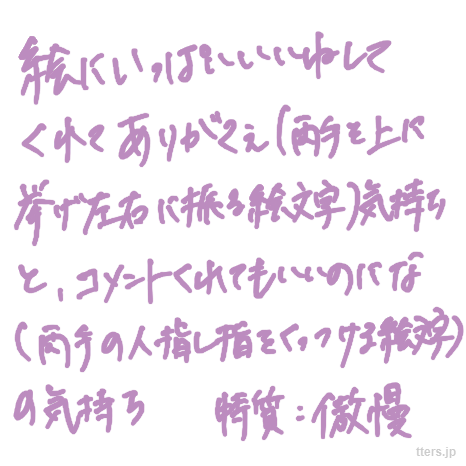 絵にいっぱいいいねして
くれてありがてえ(両手を上に
挙げ左右に振る絵文字)気持ち
と、コメントくれてもいいのにな
(両手の人指し指をくっつける絵文字)
の気持ち 特質:傲慢
tters.jp